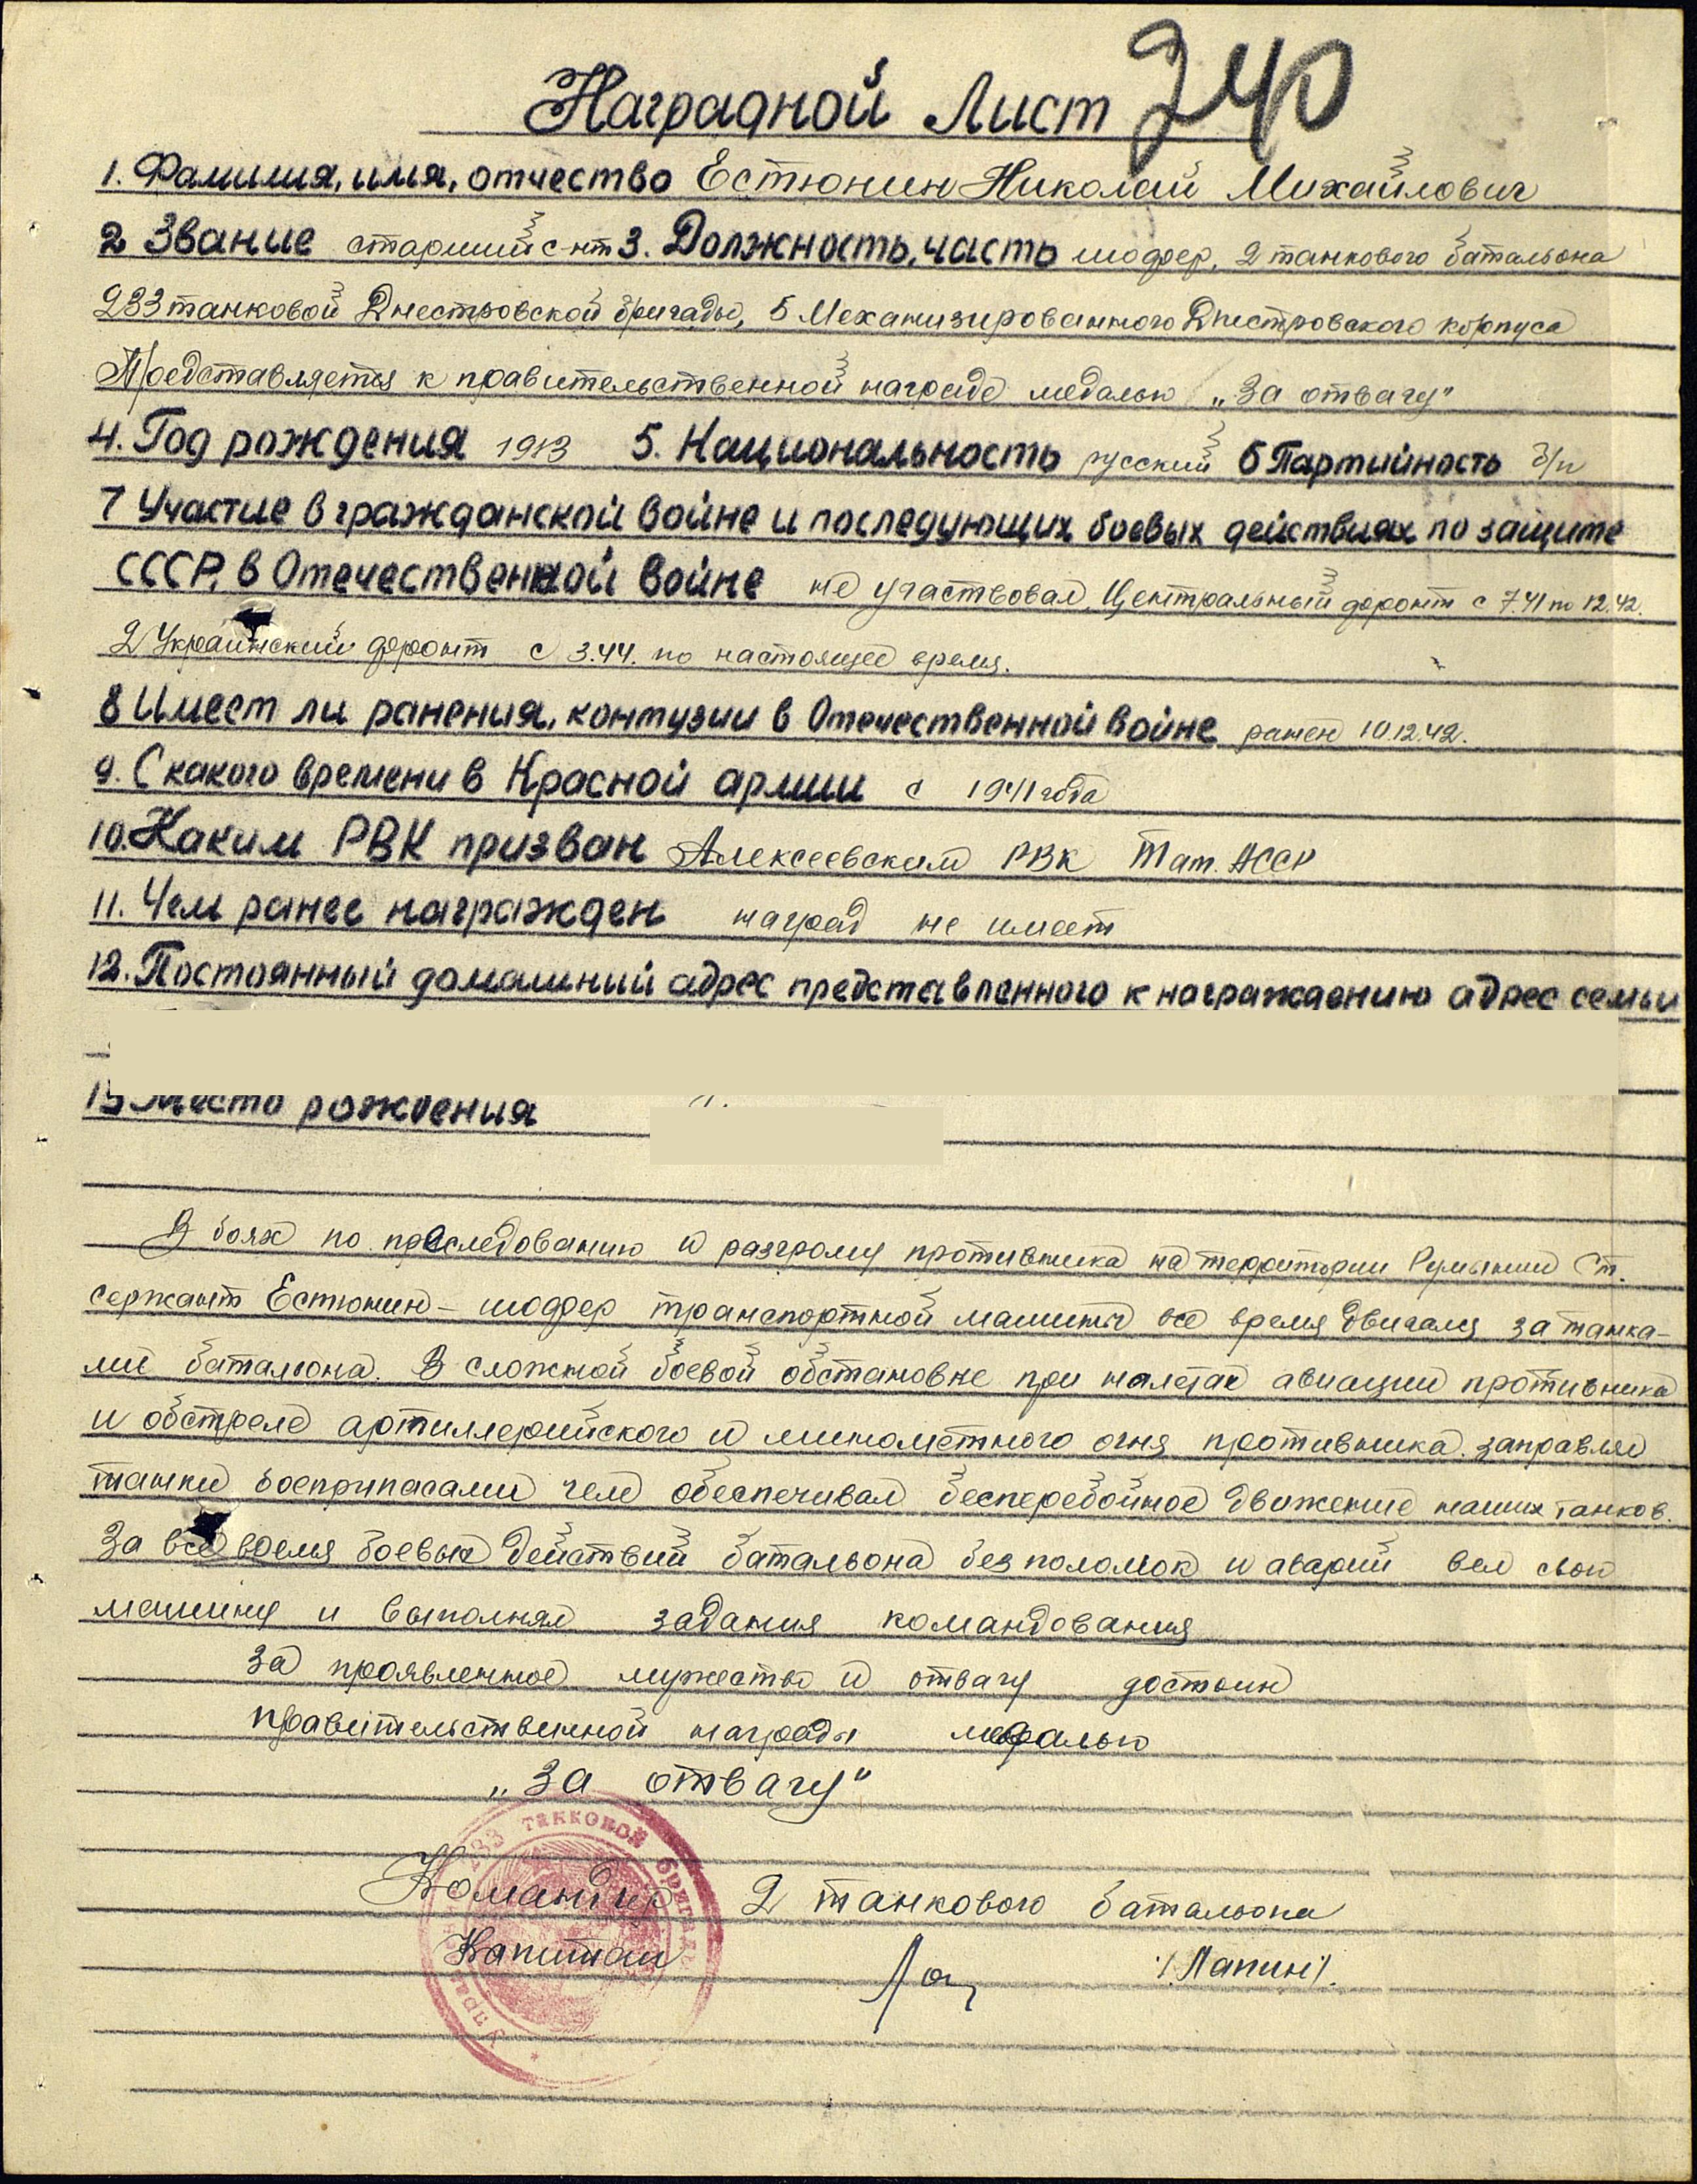 Наградной Лист 240
1. Фамилия, имя, отчество Естюнин Николай Михайлович
2 Звание старший с-нт 3. Должность, часть шофер, 2 танкового батальона
233 танковой Днестровской бригады, 5 Механизированного Днестровского корпуса
Представляется к правительственной награде медалью „За отвагу"
4. Год рождения 1913 5. Национальность русский 6 Партийность б/п
7 Участие в гражданской войне и последующих боевых действиях по защите
СССР, в Отечественной войне не участвовал, Центральный фронт с 7.41 по 12.42.
2 Украинский фронт с 3.44. по настоящее время.
8 Имеет ли ранения, контузии в Отечественной войне ранен 10.12.42.
9. С какого времени в Красной армии с 1941 года
10. Каким РВК призван Алексеевским РВК Тат. АССР
11. Чем ранее награжден наград не имеет
12. Постоянный домашний адрес представленного к награждению адрес семьи
13 Место рождения
В боях по преследованию и разгрому противника на территории Румынии Ст.
сержант Естюнин – шофер транспортной машины все время двигался за танка-
ми батальона. В сложной боевой обстановке при налетах авиации противника
и обстреле артиллерийского и минометного огня противника. заправлял
танки боеприпасами чем обеспечивал бесперебойное движение наших танков.
За все время боевых действий батальона без поломок и аварий вел свою
машину и выполнял задания командования
За проявленное мужество и отвагу достоин
правительственной награды медалью
„За отвагу"
233 танковой бригады
Командир 2 танкового батальона
Капитан /Лапин/.